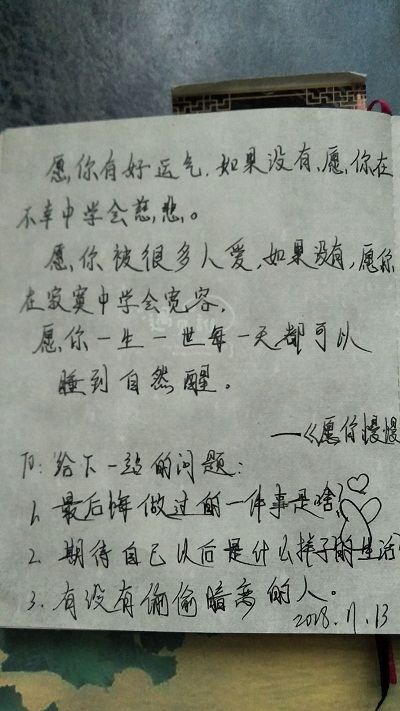 愿你有好运气,如果没有,愿你在
不幸中学会慈悲。
愿你被很多人爱,如果没有,愿你
在寂寞中学会宽容,
愿你一生一世每一天都可以
睡到自然醒。
——《愿你慢慢
To:给下一站的问题:
1、最后悔做过的一件事是啥?
2、期待自己以后是什么样子的生活
3、有没有偷偷暗恋的人。
2018.11.13